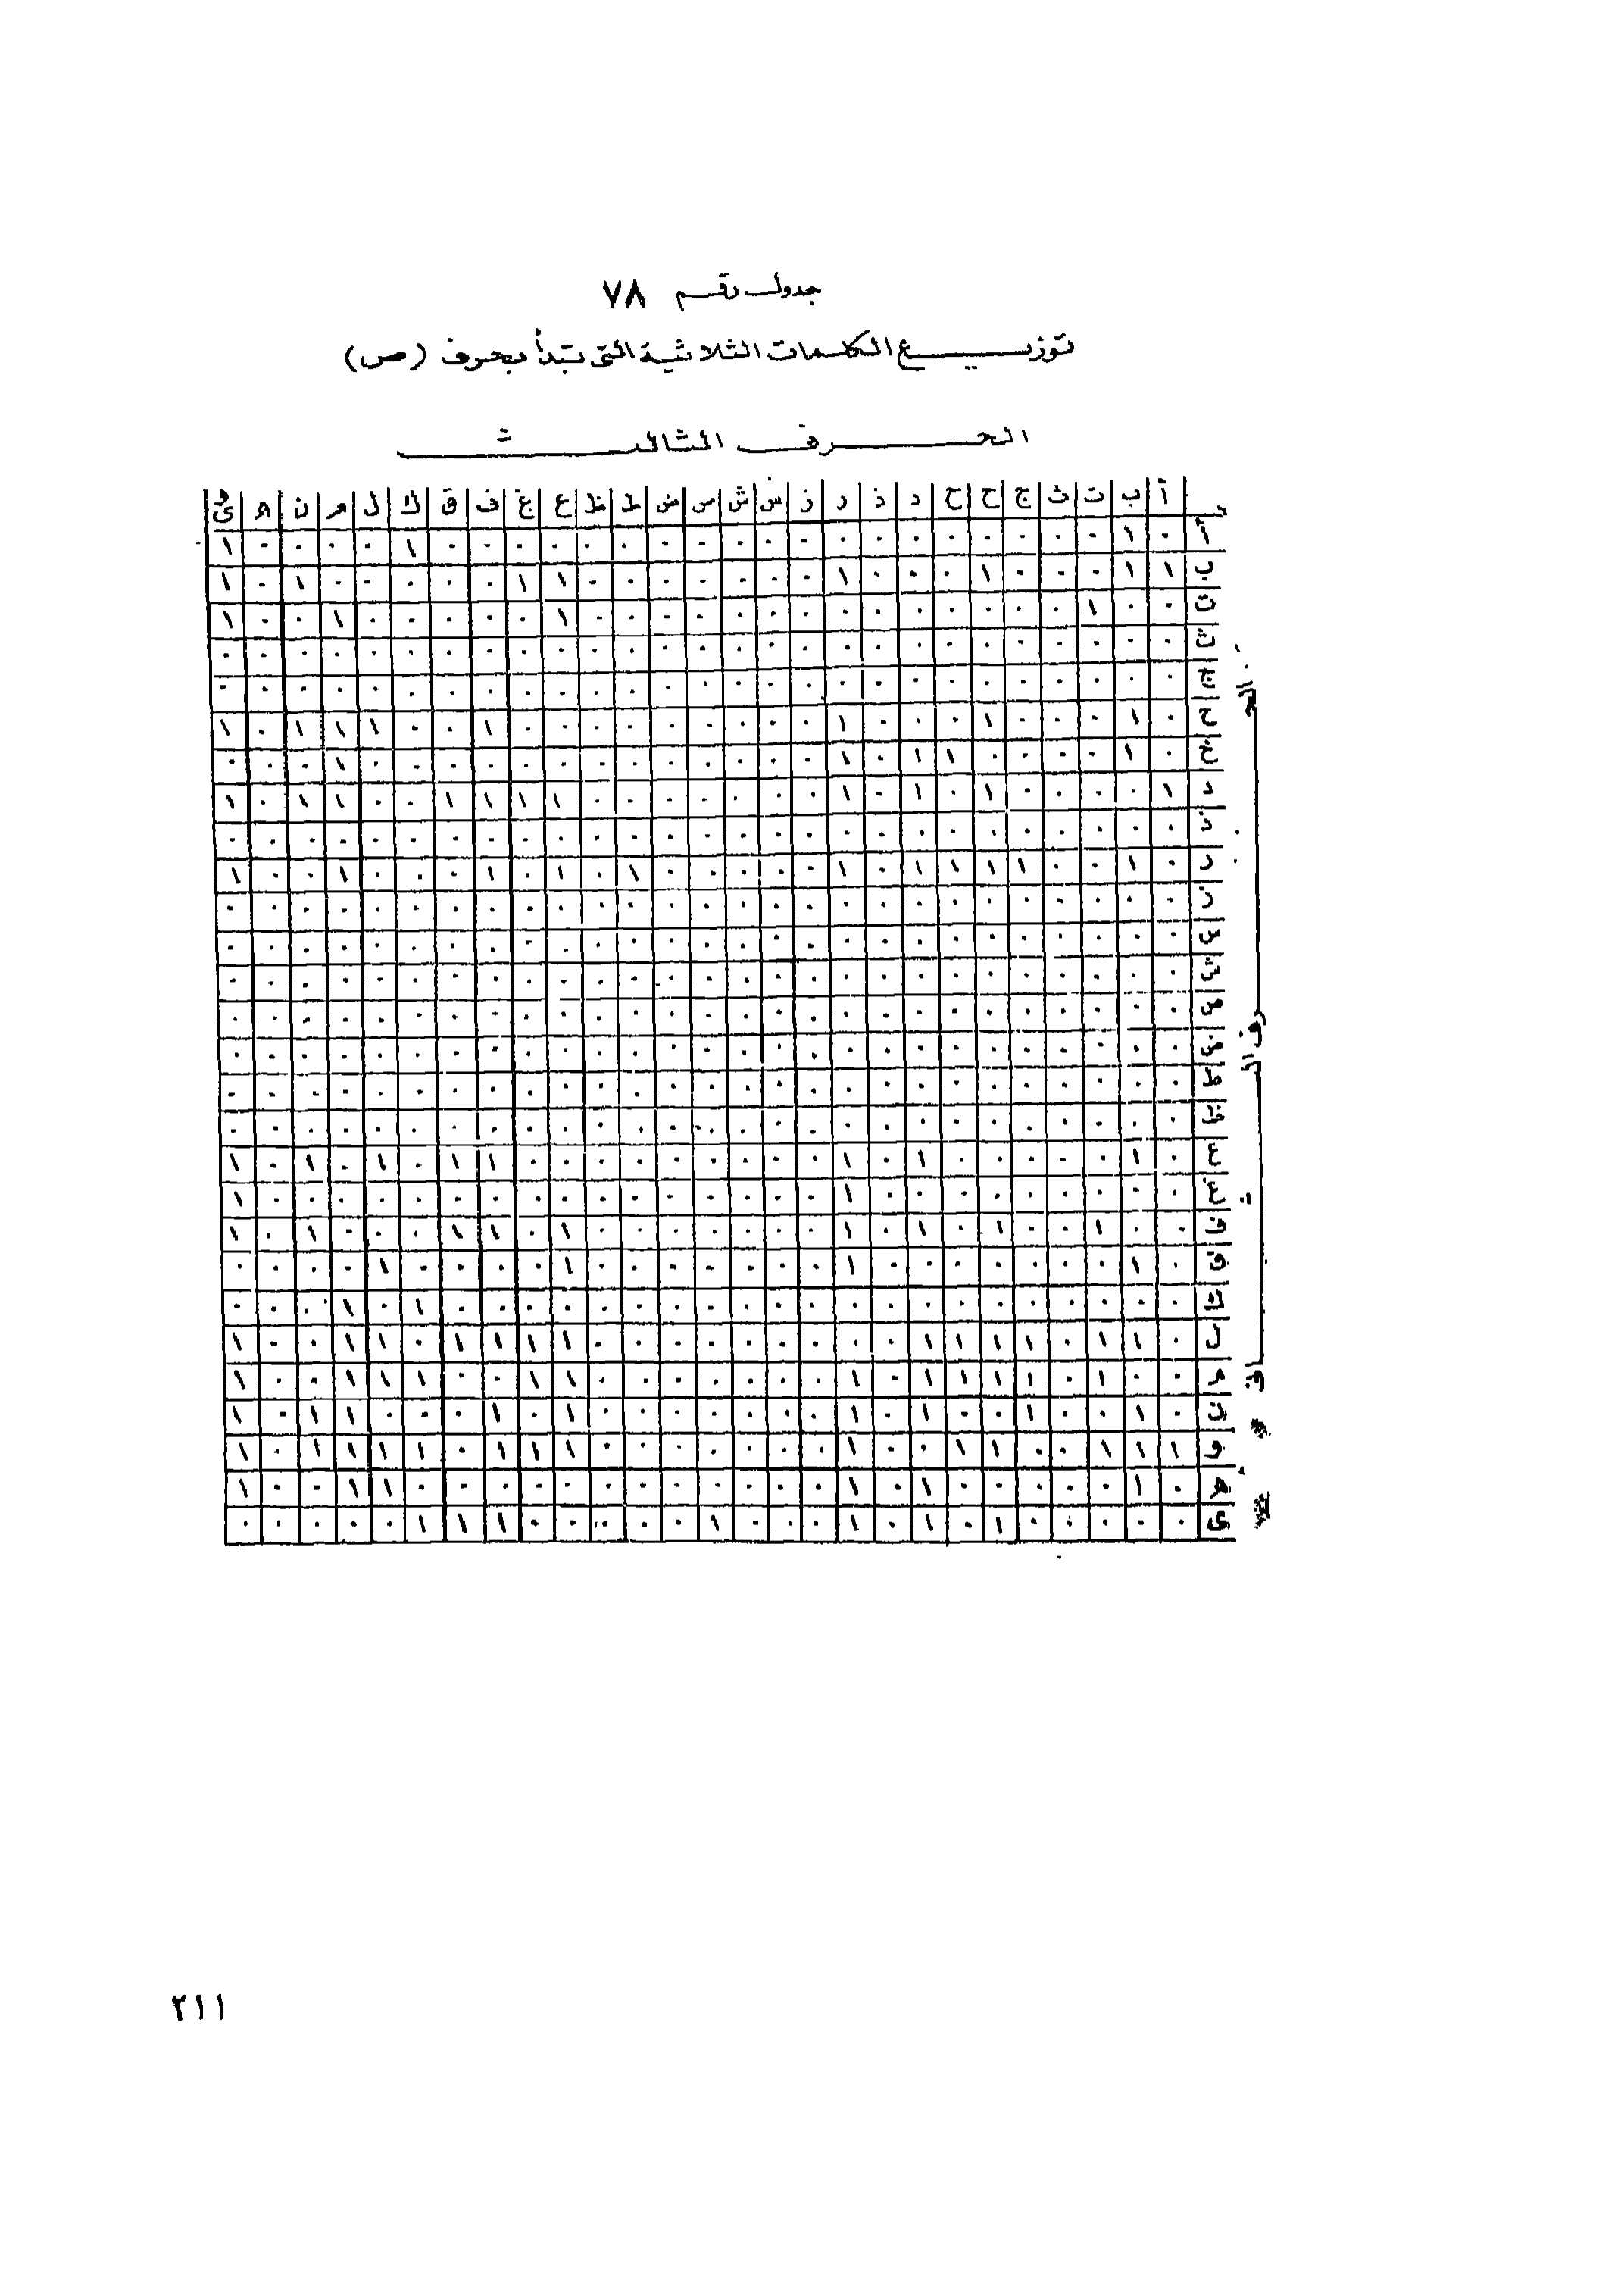 جدول رقم ٧٨
توزيع الكلمات الثلاثية التى تبدأ بحرف (ص)
الحرف الثالث
أ ب ت ث ج ح ح د ذ ر ز س ش ص ض ط ظ ع غ ف ق ك ل م ن ه و ى
أ ٠ ١ ٠ ٠ ٠ ٠ ٠ ٠ ٠ ٠ ٠ ٠ ٠ ٠ ٠ ٠ ٠ ٠ ٠ ٠ ٠ ١ ٠ ٠ ٠ ٠ ١
ب ١ ١ ٠ ٠ ٠ ١ ٠ ٠ ٠ ١ ٠ ٠ ٠ ٠ ٠ ٠ ٠ ١ ١ ٠ ٠ ٠ ٠ ٠ ١ ٠ ١
ت ٠ ٠ ١ ٠ ٠ ٠ ٠ ٠ ٠ ٠ ٠ ٠ ٠ ٠ ٠ ٠ ٠ ١ ٠ ٠ ٠ ٠ ٠ ١ ٠ ٠ ١
ث ٠ ٠ ٠ ٠ ٠ ٠ ٠ ٠ ٠ ٠ ٠ ٠ ٠ ٠ ٠ ٠ ٠ ٠ ٠ ٠ ٠ ٠ ٠ ٠ ٠ ٠ ٠
ج ٠ ٠ ٠ ٠ ٠ ٠ ٠ ٠ ٠ ٠ ٠ ٠ ٠ ٠ ٠ ٠ ٠ ٠ ٠ ٠ ٠ ٠ ٠ ٠ ٠ ٠ ٠
ح ٠ ١ ٠ ٠ ٠ ١ ٠ ٠ ٠ ١ ٠ ٠ ٠ ٠ ٠ ٠ ٠ ٠ ٠ ١ ٠ ٠ ١ ١ ١ ٠ ١
خ ٠ ١ ٠ ٠ ٠ ٠ ١ ١ ٠ ١ ٠ ٠ ٠ ٠ ٠ ٠ ٠ ٠ ٠ ٠ ٠ ٠ ٠ ١ ٠ ٠ ٠
د ١ ٠ ٠ ٠ ٠ ١ ٠ ١ ٠ ١ ٠ ٠ ٠ ٠ ٠ ٠ ٠ ١ ١ ١ ١ ٠ ٠ ١ ١ ٠ ١
ذ ٠ ٠ ٠ ٠ ٠ ٠ ٠ ٠ ٠ ٠ ٠ ٠ ٠ ٠ ٠ ٠ ٠ ٠ ٠ ٠ ٠ ٠ ٠ ٠ ٠ ٠ ٠
ر ٠ ١ ٠ ٠ ١ ١ ١ ١ ٠ ١ ٠ ٠ ٠ ٠ ٠ ١ ٠ ١ ٠ ١ ٠ ٠ ٠ ١ ٠ ٠ ١
ز ٠ ٠ ٠ ٠ ٠ ٠ ٠ ٠ ٠ ٠ ٠ ٠ ٠ ٠ ٠ ٠ ٠ ٠ ٠ ٠ ٠ ٠ ٠ ٠ ٠ ٠ ٠
س ٠ ٠ ٠ ٠ ٠ ٠ ٠ ٠ ٠ ٠ ٠ ٠ ٠ ٠ ٠ ٠ ٠ ٠ ٠ ٠ ٠ ٠ ٠ ٠ ٠ ٠ ٠
ش ٠ ٠ ٠ ٠ ٠ ٠ ٠ ٠ ٠ ٠ ٠ ٠ ٠ ٠ ٠ ٠ ٠ ٠ ٠ ٠ ٠ ٠ ٠ ٠ ٠ ٠ ٠
ص ٠ ٠ ٠ ٠ ٠ ٠ ٠ ٠ ٠ ٠ ٠ ٠ ٠ ٠ ٠ ٠ ٠ ٠ ٠ ٠ ٠ ٠ ٠ ٠ ٠ ٠ ٠
ض ٠ ٠ ٠ ٠ ٠ ٠ ٠ ٠ ٠ ٠ ٠ ٠ ٠ ٠ ٠ ٠ ٠ ٠ ٠ ٠ ٠ ٠ ٠ ٠ ٠ ٠ ٠
ط ٠ ٠ ٠ ٠ ٠ ٠ ٠ ٠ ٠ ٠ ٠ ٠ ٠ ٠ ٠ ٠ ٠ ٠ ٠ ٠ ٠ ٠ ٠ ٠ ٠ ٠ ٠
ظ ٠ ٠ ٠ ٠ ٠ ٠ ٠ ٠ ٠ ٠ ٠ ٠ ٠ ٠ ٠ ٠ ٠ ٠ ٠ ٠ ٠ ٠ ٠ ٠ ٠ ٠ ٠
ع ٠ ١ ٠ ٠ ٠ ٠ ٠ ١ ٠ ١ ٠ ٠ ٠ ٠ ٠ ٠ ٠ ٠ ٠ ١ ١ ٠ ١ ٠ ١ ٠ ١
غ ٠ ٠ ٠ ٠ ٠ ٠ ٠ ٠ ٠ ١ ٠ ٠ ٠ ٠ ٠ ٠ ٠ ٠ ٠ ٠ ٠ ٠ ٠ ٠ ٠ ٠ ١
ف ٠ ٠ ١ ٠ ٠ ١ ٠ ١ ٠ ١ ٠ ٠ ٠ ٠ ٠ ٠ ٠ ١ ٠ ١ ١ ٠ ٠ ٠ ١ ٠ ١
ق ٠ ١ ٠ ٠ ٠ ٠ ٠ ٠ ٠ ١ ٠ ٠ ٠ ٠ ٠ ٠ ٠ ١ ٠ ٠ ٠ ٠ ١ ٠ ٠ ٠ ٠
ك ٠ ٠ ٠ ٠ ٠ ٠ ٠ ٠ ٠ ٠ ٠ ٠ ٠ ٠ ٠ ٠ ٠ ٠ ٠ ٠ ٠ ١ ٠ ١ ٠ ٠ ٠
ل ٠ ١ ١ ٠ ١ ١ ١ ١ ٠ ٠ ٠ ٠ ٠ ٠ ٠ ٠ ٠ ١ ١ ١ ١ ٠ ١ ١ ٠ ٠ ١
م ٠ ٠ ١ ٠ ١ ١ ١ ١ ٠ ١ ٠ ٠ ٠ ٠ ٠ ٠ ٠ ١ ١ ٠ ٠ ١ ١ ١ ٠ ٠ ١
ن ٠ ١ ٠ ٠ ١ ٠ ٠ ١ ٠ ١ ٠ ٠ ٠ ٠ ٠ ٠ ٠ ١ ٠ ١ ٠ ٠ ٠ ١ ١ ٠ ١
و ١ ١ ١ ٠ ٠ ١ ١ ٠ ٠ ١ ٠ ٠ ٠ ٠ ٠ ٠ ٠ ١ ١ ١ ٠ ١ ١ ١ ١ ٠ ١
ه ٠ ١ ٠ ٠ ٠ ٠ ٠ ١ ٠ ١ ٠ ٠ ٠ ٠ ٠ ٠ ٠ ٠ ٠ ٠ ٠ ٠ ١ ١ ٠ ٠ ١
ى ٠ ٠ ٠ ٠ ٠ ١ ٠ ١ ٠ ١ ٠ ٠ ٠ ١ ٠ ٠ ٠ ٠ ٠ ١ ١ ١ ٠ ٠ ٠ ٠ ٠
الحرف الثانى
٢١١